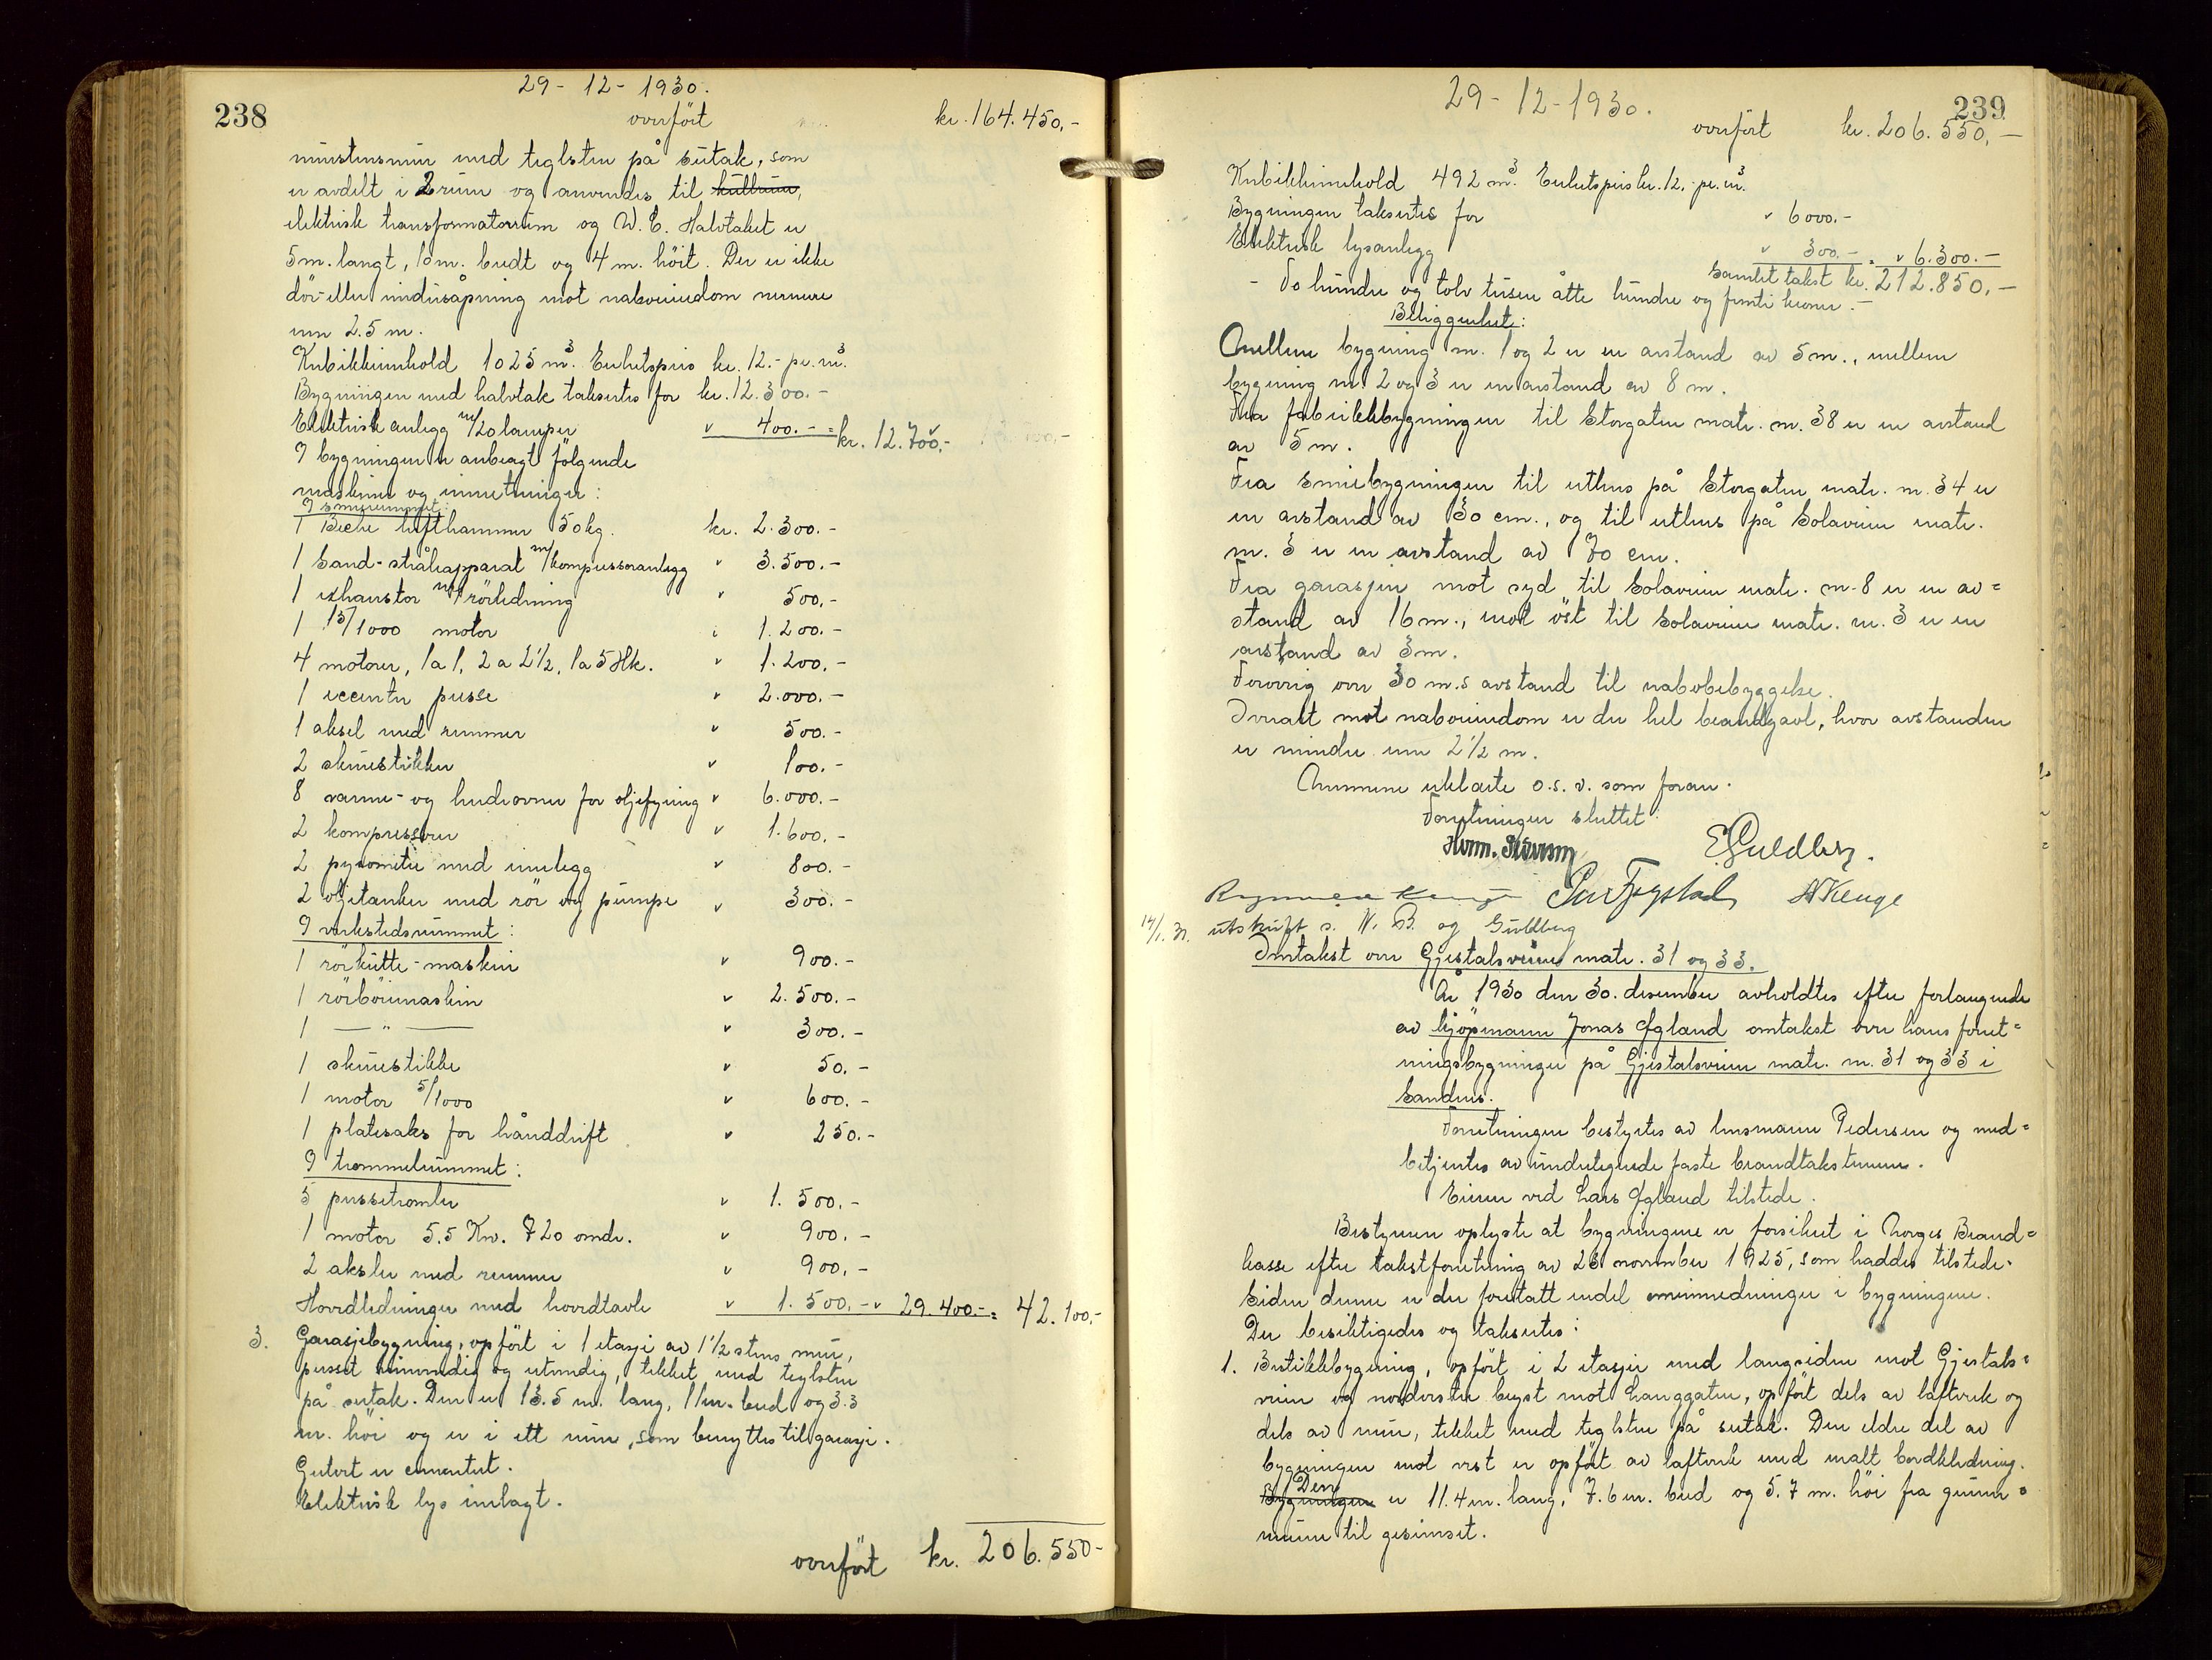 238
29 - 12 - 1930.
overført kr. 164.450,-
murstensmur med teglsten på sutak, som
er avdelt i 2 rum og anvendes til kullrum,
elektrisk transformatorrum og W.C. Halvtaket er
5 m. langt, 10 m. bredt og 4 m. höit. Der er ikke
dör- eller vindusåpning mot naboeiendom nermere
enn 2.5 m.
Kubikkinnhold 1025 m³. Enhetspris kr. 12.- pr. m³.
Bygningen med halvtak takseres for kr. 12.300.-
Elektrisk anlegg m/20 lamper " 400.- = kr. 12.700.-
I bygningen er anbragt følgende
maskiner og innretninger:
I smierummet:
1 Beche lufthammer 50 kg. kr. 2.300.-
1 Sand-stråleapparat m/kompressoranlegg " 3.500.-
1 exhaustor m/rörledning " 500.-
1 15/1000 motor " 1.200.-
4 motorer, 1 a 1, 2 a 2½, 1 a 5 Hk. " 1.200.-
1 eccenter presse " 2.000.-
1 aksel med remmer " 500.-
2 skruestikker " 100.-
8 varme- og herdeovner for oljefyring " 6.000.-
2 kompressorer " 1.600.-
2 pyrometre med innlegg " 800.-
2 oljetanker med rör og pumpe " 300.-
I verkstedsrummet:
1 rörkutte-maskin " 900.-
1 rörböiemaskin " 2.500.-
1 — " — " 300.-
1 skruestikke " 50.-
1 motor 5/1000 " 600.-
1 platesaks for hånddrift " 250.-
I trommelrummet:
5 pussetromler " 1.500.-
1 motor 5.5 Kw. 720 omdr. " 900.-
2 aksler med remmer " 900.-
Hovedledninger med hovedtavle " 1.500.- " 29.400.- = 42.100.-
3. Garasjebygning, opfört i 1 etasje av 1½ stens mur,
pusset innvendig og utvendig, tekket med teglsten
på sutak. Den er 13.5 m. lang, 11 m. bred og 3.3
m. höi og er i ett rum, som benyttes til garasje.
Gulvet er cementert.
Elektrisk lys innlagt.
overfört kr. 206.550-
239
29 - 12 - 1930.
overfört kr. 206.550,-
Kubikkinnhold 492 m³. Enhetspris kr. 12.- pr. m³.
Bygningen takseres for " 6000.-
Elektrisk lysanlegg " 300.- = " 6.300.-
Samlet takst kr. 212.850,-
- To hundre og tolv tusen åtte hundre og femti kroner -
Beliggenhet:
Mellem bygning nr. 1 og 2 er en avstand av 5 m., mellem
bygning nr. 2 og 3 er en avstand av 8 m.
Fra fabrikkbygningen til Storgaten matr. nr. 38 er en avstand
av 5 m.
Fra smiebygningen til uthus på Storgaten matr. nr. 34 er
en avstand av 30 cm., og til uthus på Solaveien matr.
nr. 3 er en avstand av 70 cm.
Fra garasjen mot syd til Solaveien matr. nr. 8 er en av=
stand av 16 m., mot öst til Solaveien matr. nr. 3 er en
avstand av 3 m.
Forövrig over 30 m.s avstand til nabobebyggelse.
Overalt mot naboeiendom er der hel brandgavl, hvor avstanden
er mindre enn 2½ m.
Mennene erklærte o.s.v. som foran.
Forretningen sluttet
E Guldberg.
14/1. 31. utskrift s. N. B. og Guldberg
Omtakst over Gjestalsveien matr. 31 og 33.
År 1930 den 30. desember avholdtes efter forlangende
av kjöpmann Jonas Ogland omtakst over hans forret=
ningsbygninger på Gjestalsveien matr. nr. 31 og 33 i
Sandnes.
Forretningen bestyrtes av lensmann Pedersen og med=
betjentes av undertegnede faste brandtakstmenn.
Eieren ved Lars Ogland tilstede.
Bestyreren oplyste at bygningene er forsikret i Norges Brand=
kasse efter takstforretning av 23 november 1925, som haddes tilstede.
Siden denne er der foretatt endel ominnredninger i bygningene.
Der besiktigedes og takseres:
1. Butikkbygning, opfört i 2 etasjer med langsiden mot Gjestals=
veien og nordvestre bryst mot Langgaten, opfört dels av laftverk og
dels av mur, tekket med teglsten på sutak. Den eldre del av
bygningen mot vest er opfört av laftverk med malt bordkledning.
Bygningen Den er 11.4 m. lang, 7.6 m. bred og 5.7 m. höi fra grunn=
muren til gesimset.